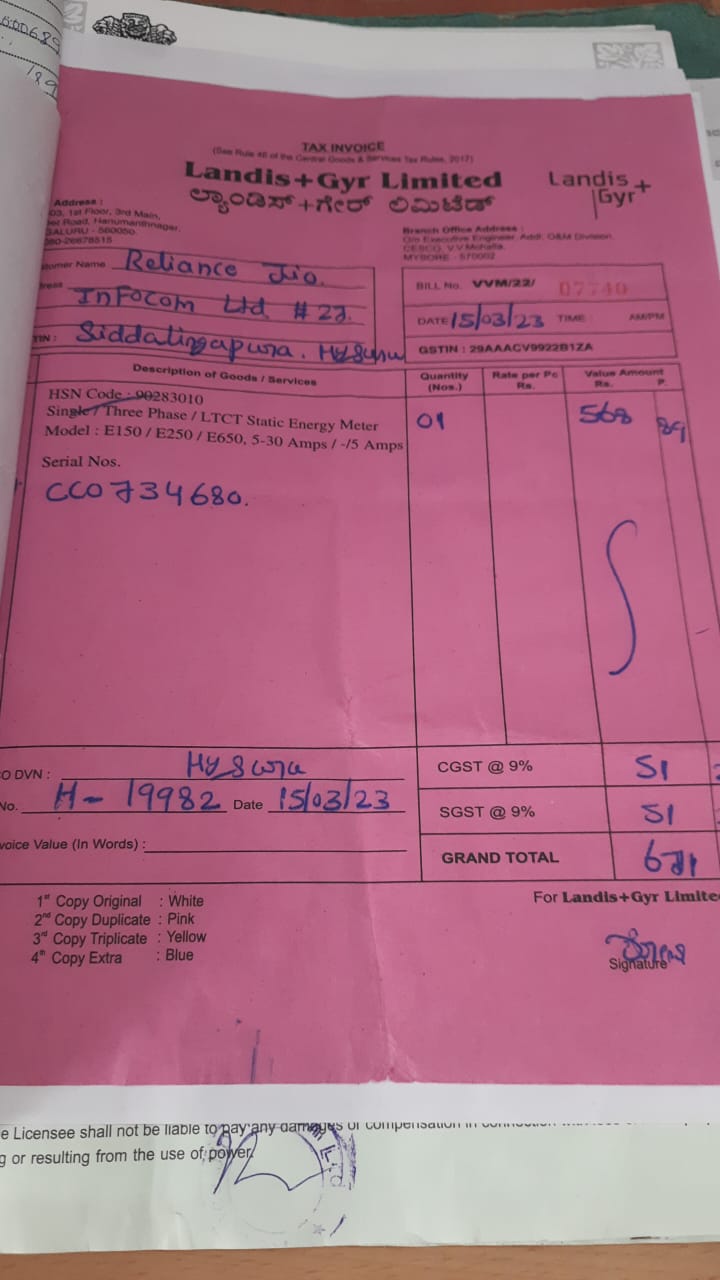 TAX INVOICE
(See Rule 46 of the Central Goods & Services Tax Rules, 2017)
Landis+Gyr Limited
ಲ್ಯಾಂಡಿಸ್+ಗೇರ್ ಲಿಮಿಟೆಡ್
Landis+
Gyr
Address :
03, 1st Floor, 3rd Main,
Road, Hanumanthnagar,
GALURU - 560050
080-26678515
Branch Office Address :
O/o Executive Engineer Addl. O&M Division
CESCO, V.V.Mohalla,
MYSORE - 570002
tomer Name Reliance Jio.
ress Infocom Ltd # 22.
TIN : Siddalingapura. Mysuru
BILL No. VVM/22/ 07740
DATE 15/03/23 TIME : AM/PM
GSTIN : 29AAACV9922B1ZA
Description of Goods / Services
Quantity (Nos.)
Rate per Pc Rs.
Value Amount Rs. P.
HSN Code : 90283010
Single / Three Phase / LTCT Static Energy Meter 01 568 89
Model : E150 / E250 / E650, 5-30 Amps / -/5 Amps
Serial Nos.
CC0734680.
O DVN : Mysuru
No. H- 19982 Date 15/03/23
voice Value (In Words) :
CGST @ 9% 51
SGST @ 9% 51
GRAND TOTAL 671
1st Copy Original : White
2nd Copy Duplicate : Pink
3rd Copy Triplicate : Yellow
4th Copy Extra : Blue
For Landis+Gyr Limite
Signature
e Licensee shall not be liable to pay any damages or compensation in
g or resulting from the use of power.